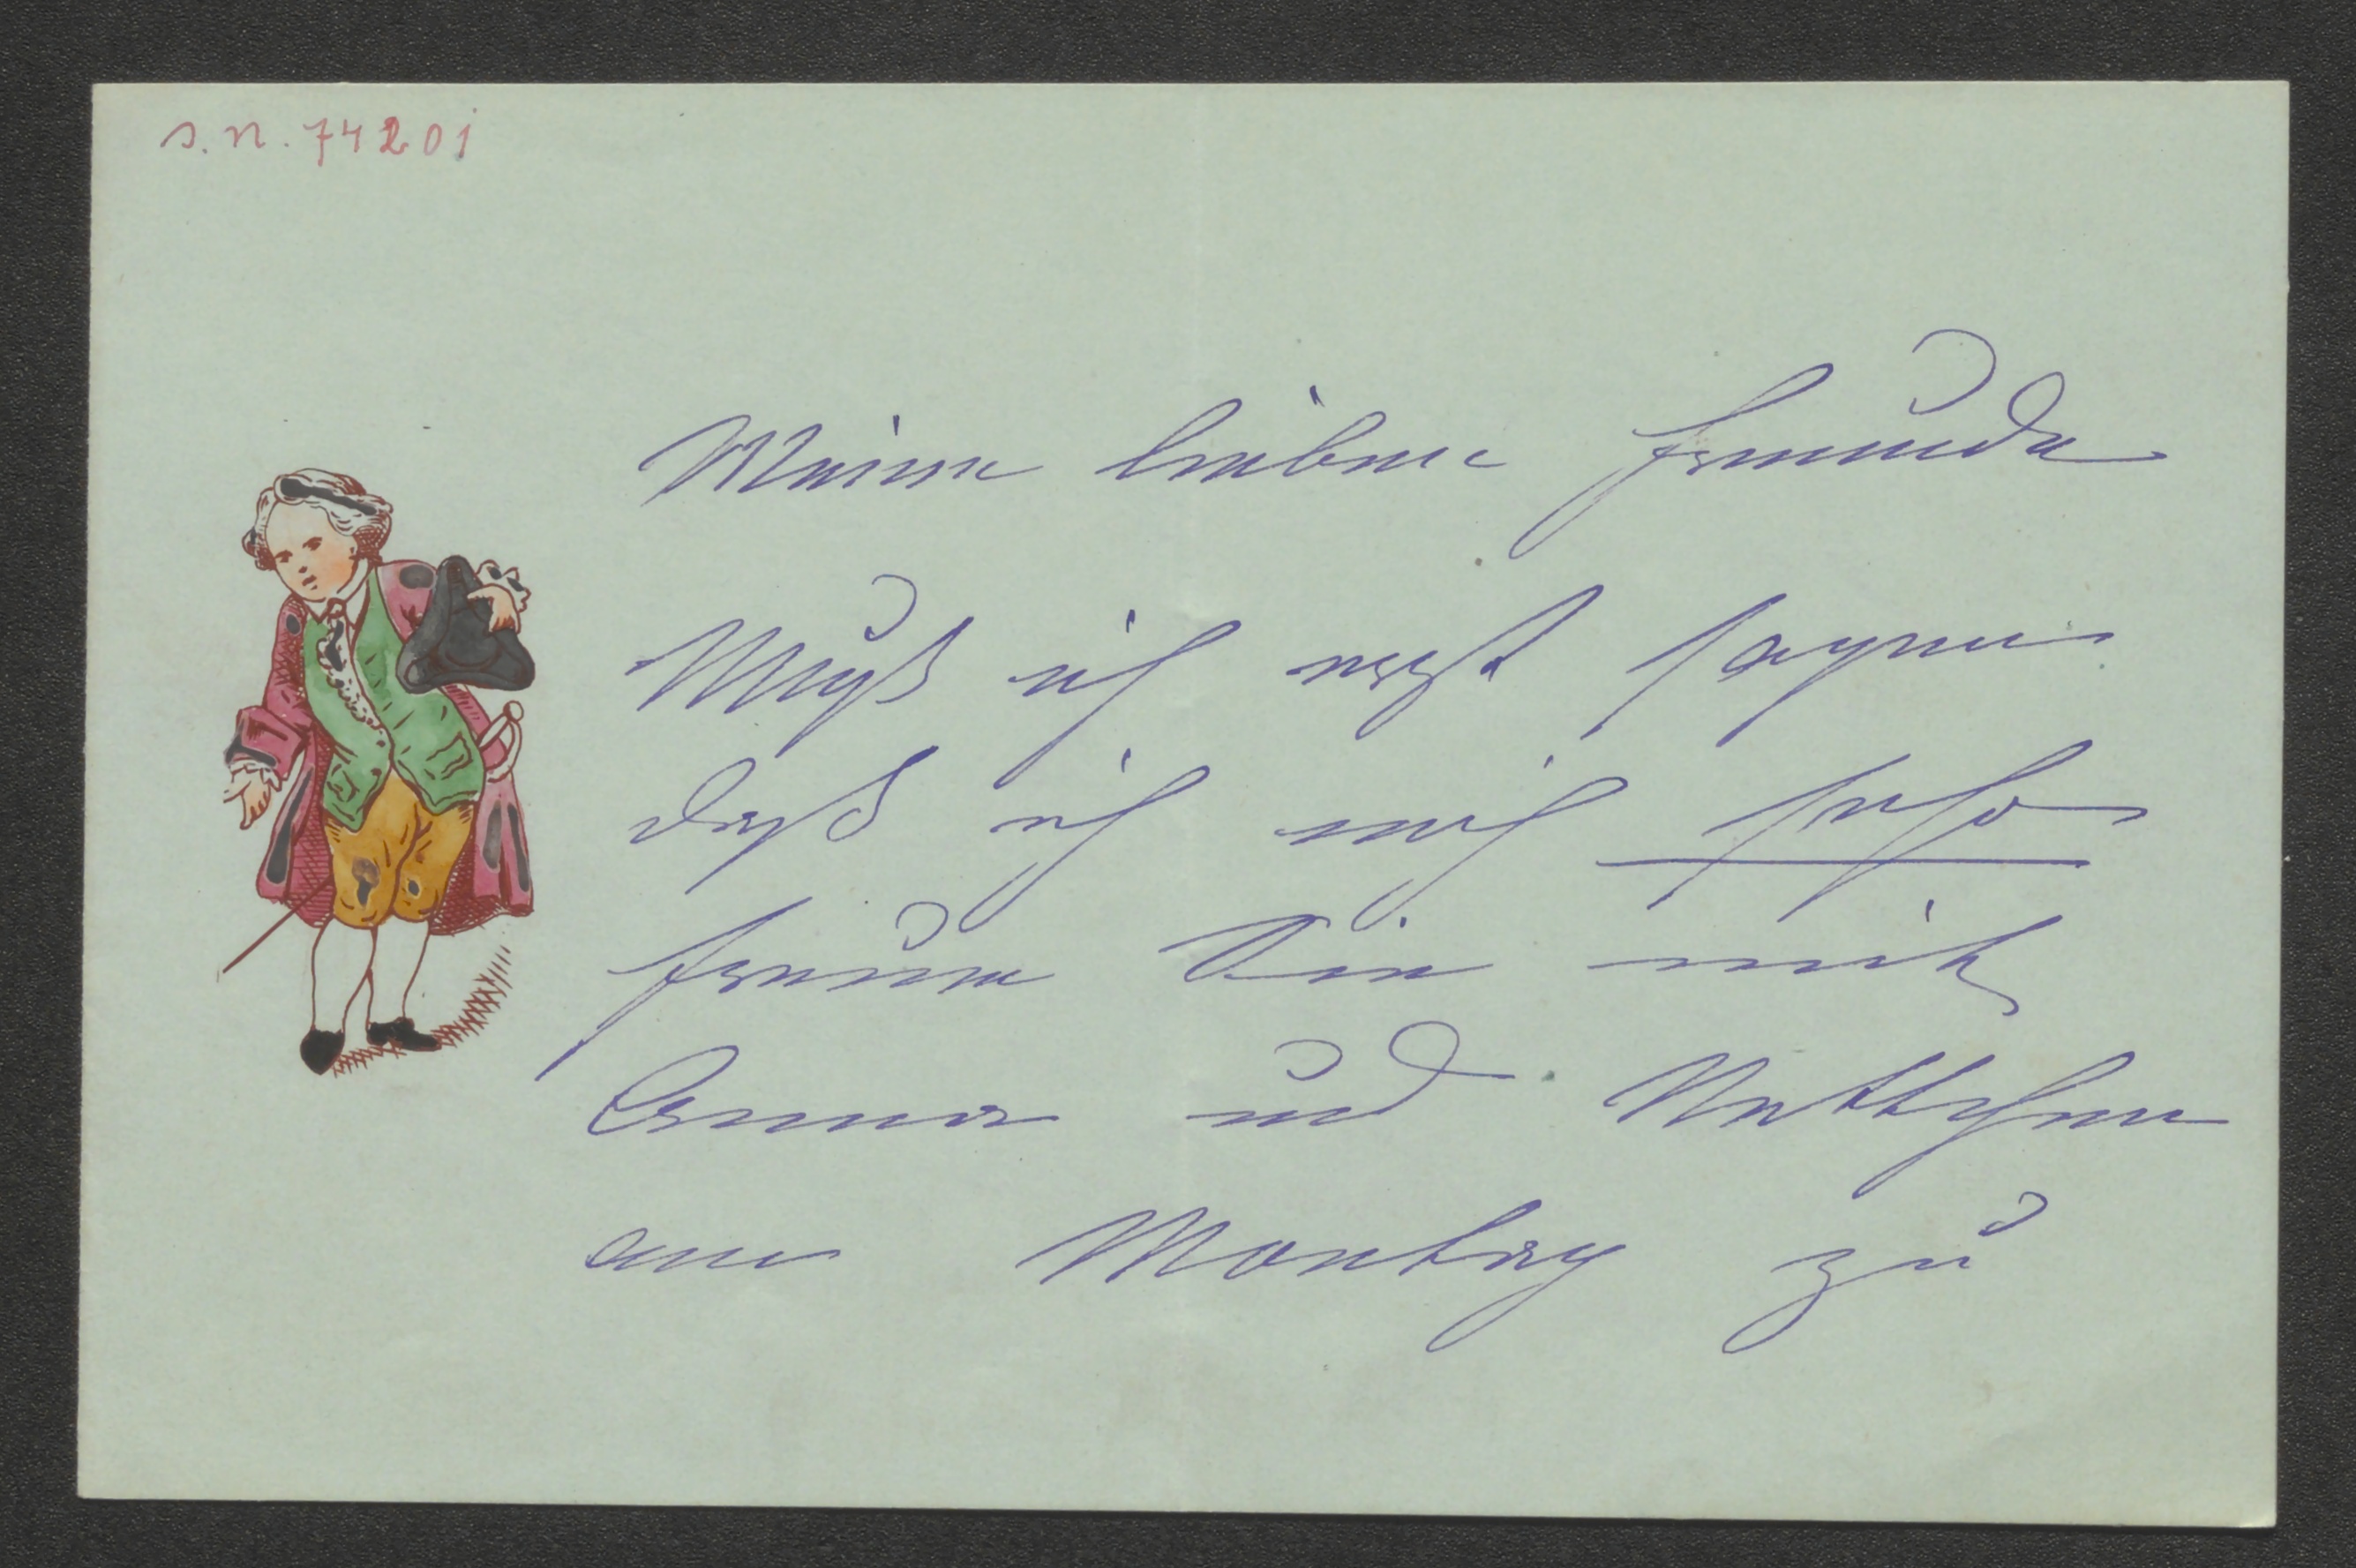 s. n. 74201
Meine lieben Freunde
Muß ich erst sagen
daß ich mich sehr
freue Sie mit
Emma und
am Montag zu